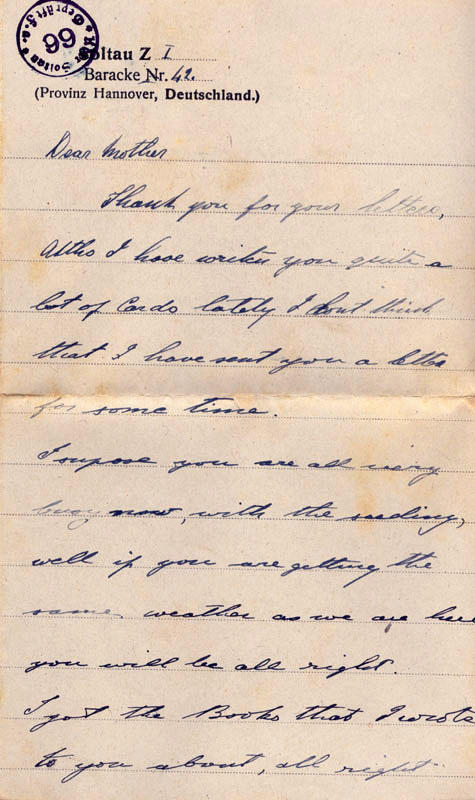 Geprüft F.a.
99
Kgr Soltau
Soltau Z I
Baracke Nr. 42.
(Provinz Hannover, Deutschland.)
Dear Mother
Thank you for your letters,
Altho I have writen you quite a
lot of Cards lately I dont think
that I have sent you a letter
for some time.
I supose you are all very
busy now, with the seeding,
well if you are getting the
same weather as we are here
you will be all right.
I got the Books that I wrote
to you about, all right